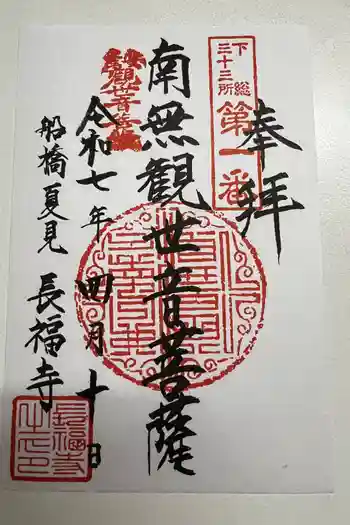 奉拝
下総
三十三所
第一番
南無観世音菩薩
令和七年四月十日
船橋夏見
長福寺
長福寺
之印